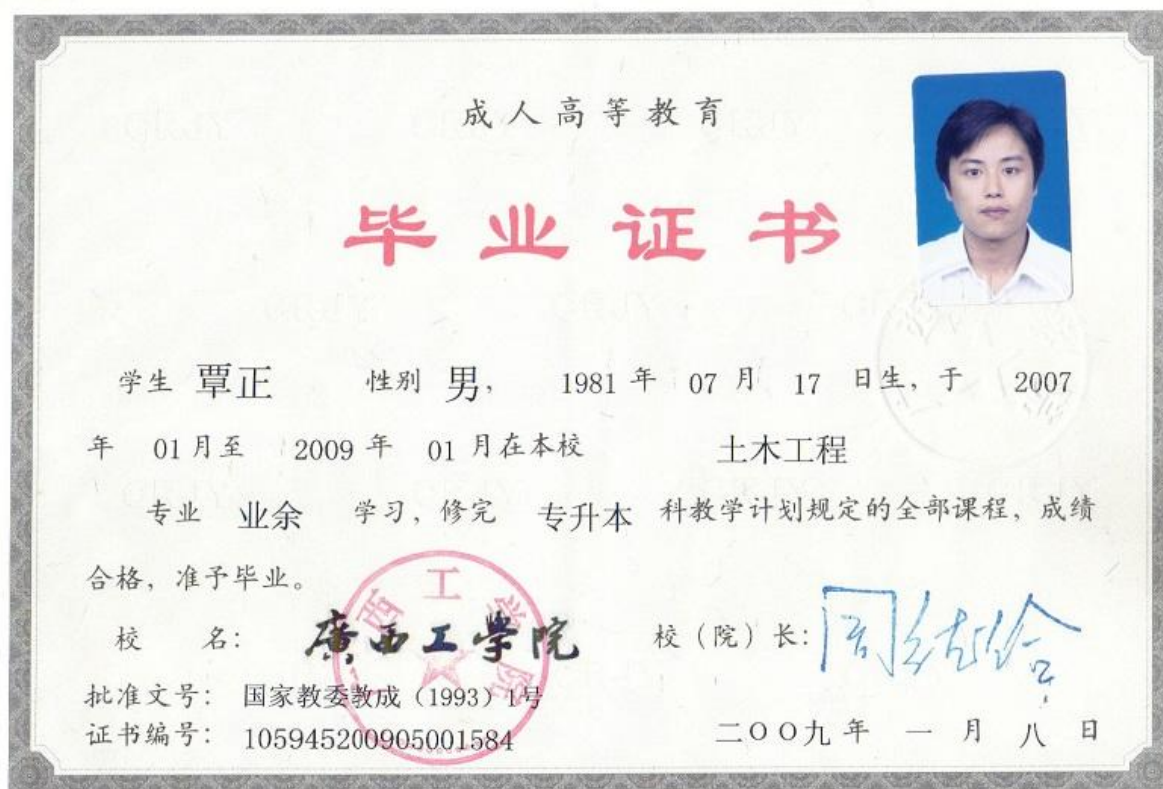 成人高等教育
毕业证书
学生 覃正 性别 男， 1981 年 07 月 17 日生，于 2007
年 01 月至 2009 年 01 月在本校 土木工程
专业 业余 学习，修完 专升本 科教学计划规定的全部课程，成绩
合格，准予毕业。
校 名： 廣西工学院 校（院）长：
批准文号： 国家教委教成（1993）1号
证书编号： 105945200905001584 二〇〇九 年 一 月 八 日
广西工学院